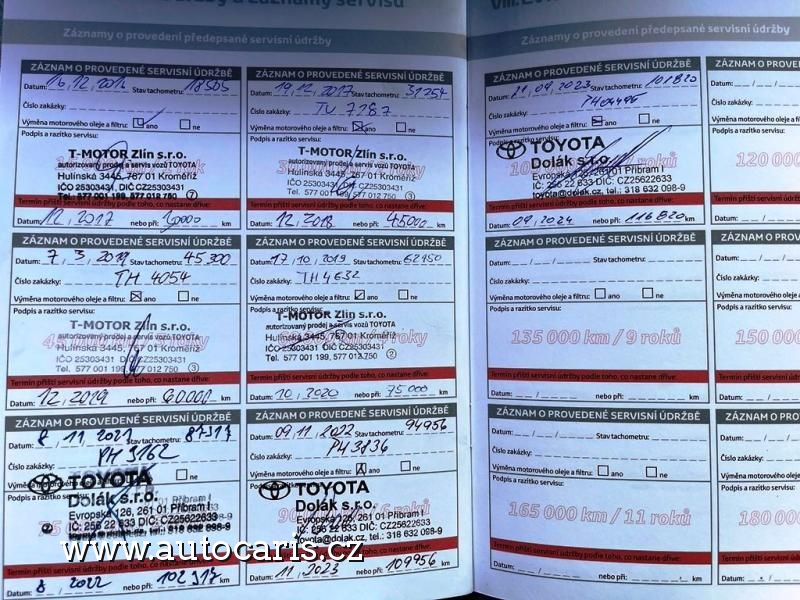 a záznamy servisu
Záznamy o provedení předepsané servisní údržby
ZÁZNAM O PROVEDENÉ SERVISNÍ ÚDRŽBĚ
Datum: 16, 12, 2016 Stav tachometru: 18505
Číslo zakázky:
Výměna motorového oleje a filtru: ano ne
Podpis a razítko servisu:
T-MOTOR Zlín s.r.o.
autorizovaný prodej a servis vozů TOYOTA
Hulínská 3445, 767 01 Kroměříž
IČO 25303431, DIČ CZ25303431
Tel. 577 001 199, 577 012 750 7
Termín příští servisní údržby podle toho, co nastane dříve:
Datum: 12, 2017 nebo při: 30000 km
ZÁZNAM O PROVEDENÉ SERVISNÍ ÚDRŽBĚ
Datum: 19, 12, 2017 Stav tachometru: 31254
Číslo zakázky: TU 7287
Výměna motorového oleje a filtru: ano ne
Podpis a razítko servisu:
T-MOTOR Zlín s.r.o.
autorizovaný prodej a servis vozů TOYOTA
Hulínská 3445, 767 01 Kroměříž
IČO 25303431 DIČ CZ25303431
Tel. 577 001 199, 577 012 750 3
Termín příští servisní údržby podle toho, co nastane dříve:
Datum: 12, 2018 nebo při: 45000 km
ZÁZNAM O PROVEDENÉ SERVISNÍ ÚDRŽBĚ
Datum: 7, 3, 2019 Stav tachometru: 45300
Číslo zakázky: TH 4054
Výměna motorového oleje a filtru: ano ne
Podpis a razítko servisu:
T-MOTOR Zlín s.r.o.
autorizovaný prodej a servis vozů TOYOTA
Hulínská 3445, 767 01 Kroměříž
IČO 25303431 DIČ CZ25303431
Tel. 577 001 199, 577 012 750 3
Termín příští servisní údržby podle toho, co nastane dříve:
Datum: 12, 2019 nebo při: 60000 km
ZÁZNAM O PROVEDENÉ SERVISNÍ ÚDRŽBĚ
Datum: 17, 10, 2019 Stav tachometru: 62150
Číslo zakázky: TH4632
Výměna motorového oleje a filtru: ano ne
Podpis a razítko servisu:
T-MOTOR Zlín s.r.o.
autorizovaný prodej a servis vozů TOYOTA
Hulínská 3445, 767 01 Kroměříž
IČO 25303431 DIČ CZ25303431
Tel. 577 001 199, 577 012 750 2
Termín příští servisní údržby podle toho, co nastane dříve:
Datum: 10, 2020 nebo při: 75000 km
ZÁZNAM O PROVEDENÉ SERVISNÍ ÚDRŽBĚ
Datum: 8, 11, 2021 Stav tachometru: 87317
Číslo zakázky: PH 3162
Výměna motorového oleje a filtru: ano ne
Podpis a razítko servisu:
TOYOTA
Dolák s.r.o.
Evropská 126, 261 01 Příbram I
IČ: 256 22 633 DIČ: CZ25622633
Termín příští servisní údržby podle toho, co nastane dříve:
Datum: 8, 2022 nebo při: 102317 km
ZÁZNAM O PROVEDENÉ SERVISNÍ ÚDRŽBĚ
Datum: 09, 11, 2022 Stav tachometru: 94956
Číslo zakázky: PH3836
Výměna motorového oleje a filtru: ano ne
TOYOTA
Dolák s.r.o.
Evropská 126, 261 01 Příbram I
IČ: 256 22 633 DIČ: CZ25622633
toyota@dolak.cz, tel.: 318 632 098-9
Termín příští servisní údržby podle toho, co nastane dříve:
Datum: 11, 2023 nebo při: 109956 km
VIII.
ZÁZNAM O PROVEDENÉ SERVISNÍ ÚDRŽBĚ
Datum: 21, 09, 2023 Stav tachometru: 101820
Číslo zakázky: PH04496
Výměna motorového oleje a filtru: ano ne
TOYOTA
Dolák s.r.o.
Evropská 126, 261 01 Příbram I
IČ: 256 22 633 DIČ: CZ25622633
toyota@dolak.cz, tel.: 318 632 098-9
Termín příští servisní údržby podle toho, co nastane dříve:
Datum: 09, 2024 nebo při: 116820 km
ZÁZNAM O PROVEDENÉ SERVISNÍ ÚDRŽBĚ
Datum: Stav tachometru:
Číslo zakázky:
Výměna motorového oleje a filtru: ano ne
Podpis a razítko servisu:
135 000 km / 9 roků
Termín příští servisní údržby podle toho, co nastane dříve:
Datum: nebo při: km
ZÁZNAM O PROVEDENÉ SERVISNÍ ÚDRŽBĚ
Datum: Stav tachometru:
Číslo zakázky:
Výměna motorového oleje a filtru: ano ne
Podpis a razítko servisu:
165 000 km / 11 roků
Termín příští servisní údržby podle toho, co nastane dříve:
Datum: nebo při: km
ZÁZNAM O PROVEDEN
Datum:
Číslo zakázky:
Výměna motorového
Podpis a razítko servisu:
120 000
Termín příští servisní
Datum:
ZÁZNAM O PROVE
Datum:
Číslo zakázky:
Výměna motorového
Podpis a razítko servisu:
150 00
Termín příští servisní
Datum:
ZÁZNAM O PROV
Datum:
Číslo zakázky:
Výměna motorového
Podpis a razítko servisu:
180 000
Termín příští servisní
Datum:
www.autocaris.cz